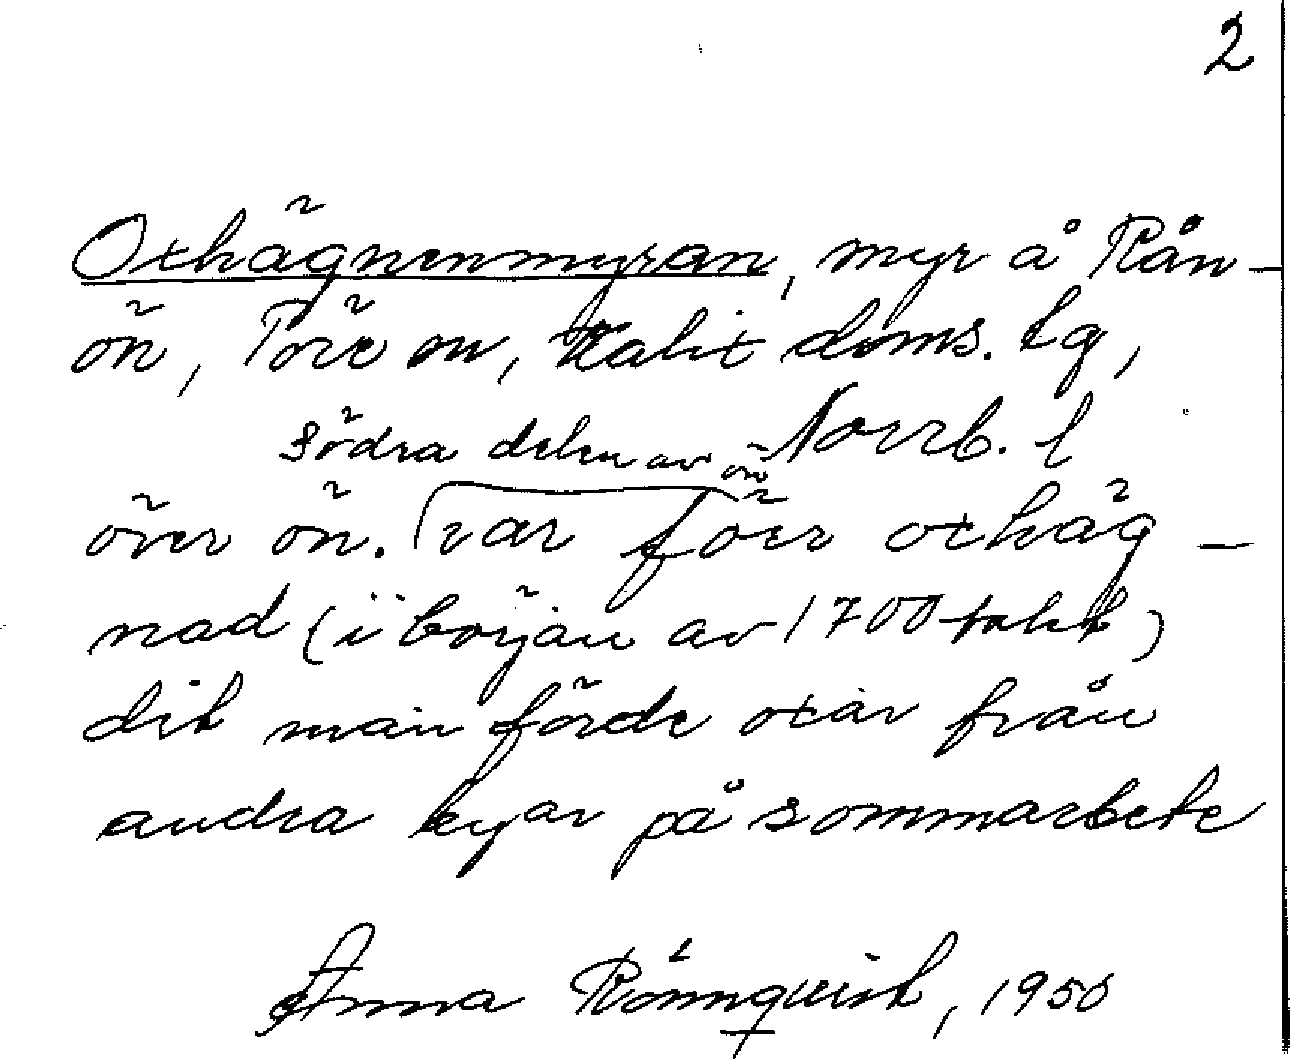 2
Oxhägnenmyran, myr å Rån-
ön, Töre sn, Kalix doms. tg,
Norrb. l
södra delen av ön
över ön. var förr oxhäg-
nad (i början av 1700talet)
dit man förde oxar från
andra byar på sommarbete
Anna Rönnquist, 1950